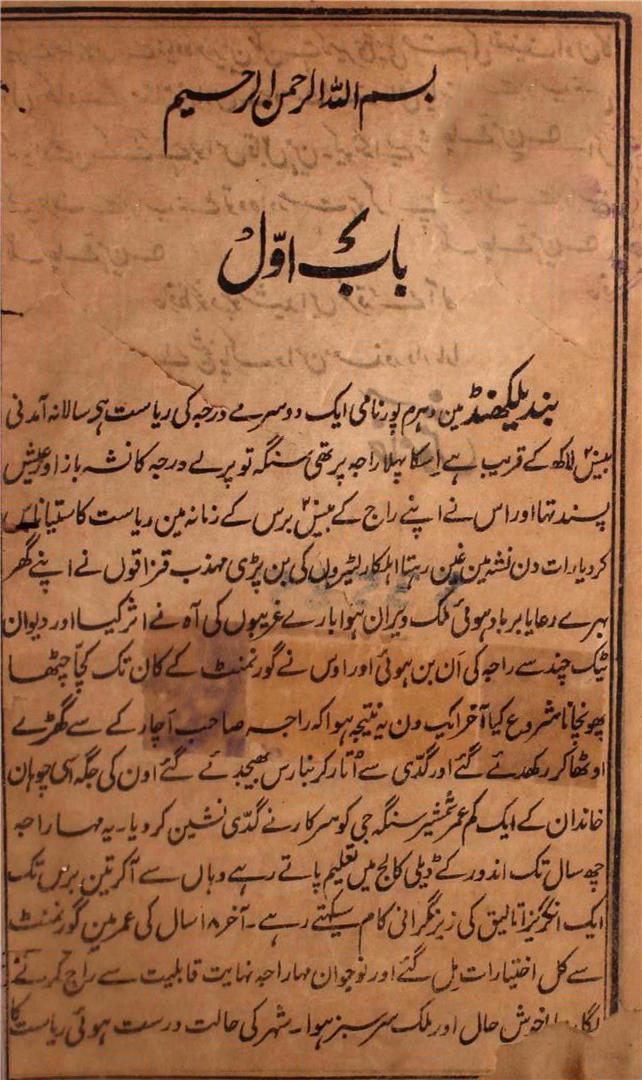 بسم اللہ الرحمن الرحیم
باب اوّل
بندیلکھنڈ مین دہرم پور نامی ایک دوسرے درجہ کی ریاست ہی سالانہ آمدنی
بیس۲۰ لاکھ کے قریب ہے اِسکا پہلا راجہ پرتھی سنگہ تو پرلے درجہ کا نشہ باز اور عیش
پسند تہا اور اس نے اپنے راج کے بیس۲۰ برس کے زمانہ مین ریاست کا ستیاناس
کر دیا رات دن نشہ مین غین رہتا اہلکار لٹیروں کی بن پڑی مہذب قزاقوں نے اپنے گھر
بہرے رعایا برباد ہوئی ملک ویران ہوا بارے غریبوں کی آہ نے اثر کیا اور دیوان
ٹیک چند سے راجہ کی اَن بن ہوئی اور اوس نے گورنمنٹ کے کان تک کچّا چٹھا
پھونچانا شروع کیا آخر ایک دن یہ نتیجہ ہوا کہ راجہ صاحب آچار کے سے گھڑے
اوٹھا کر رکھدئے گئے اور گدّی سے اُتار کر بنارس بھیجدئے گئے اون کی جگہ اسی چوہان
خاندان کے ایک کم عمر شمشیر سنگہ جی کو سرکار نے گدّی نشین کر دیا۔ یہ مہاراجہ
چھ سال تک اندور کے ڈیلی کالج میں تعلیم پاتے رہے وہاں سے آکر تین برس تک
ایک انگریز اتالیق کی زیر نگرانی کام سیکتے رہے۔ آخر ۱۸ سال کی عمر مین گورنمنٹ
سے کل اختیارات مِل گئے اور نوجوان مہاراجہ نہایت قابلیت سے راج کرنے
لگا خوش حال اور ملک سرسبز ہوا۔ شہر کی حالت درست ہوئی ریاست کا